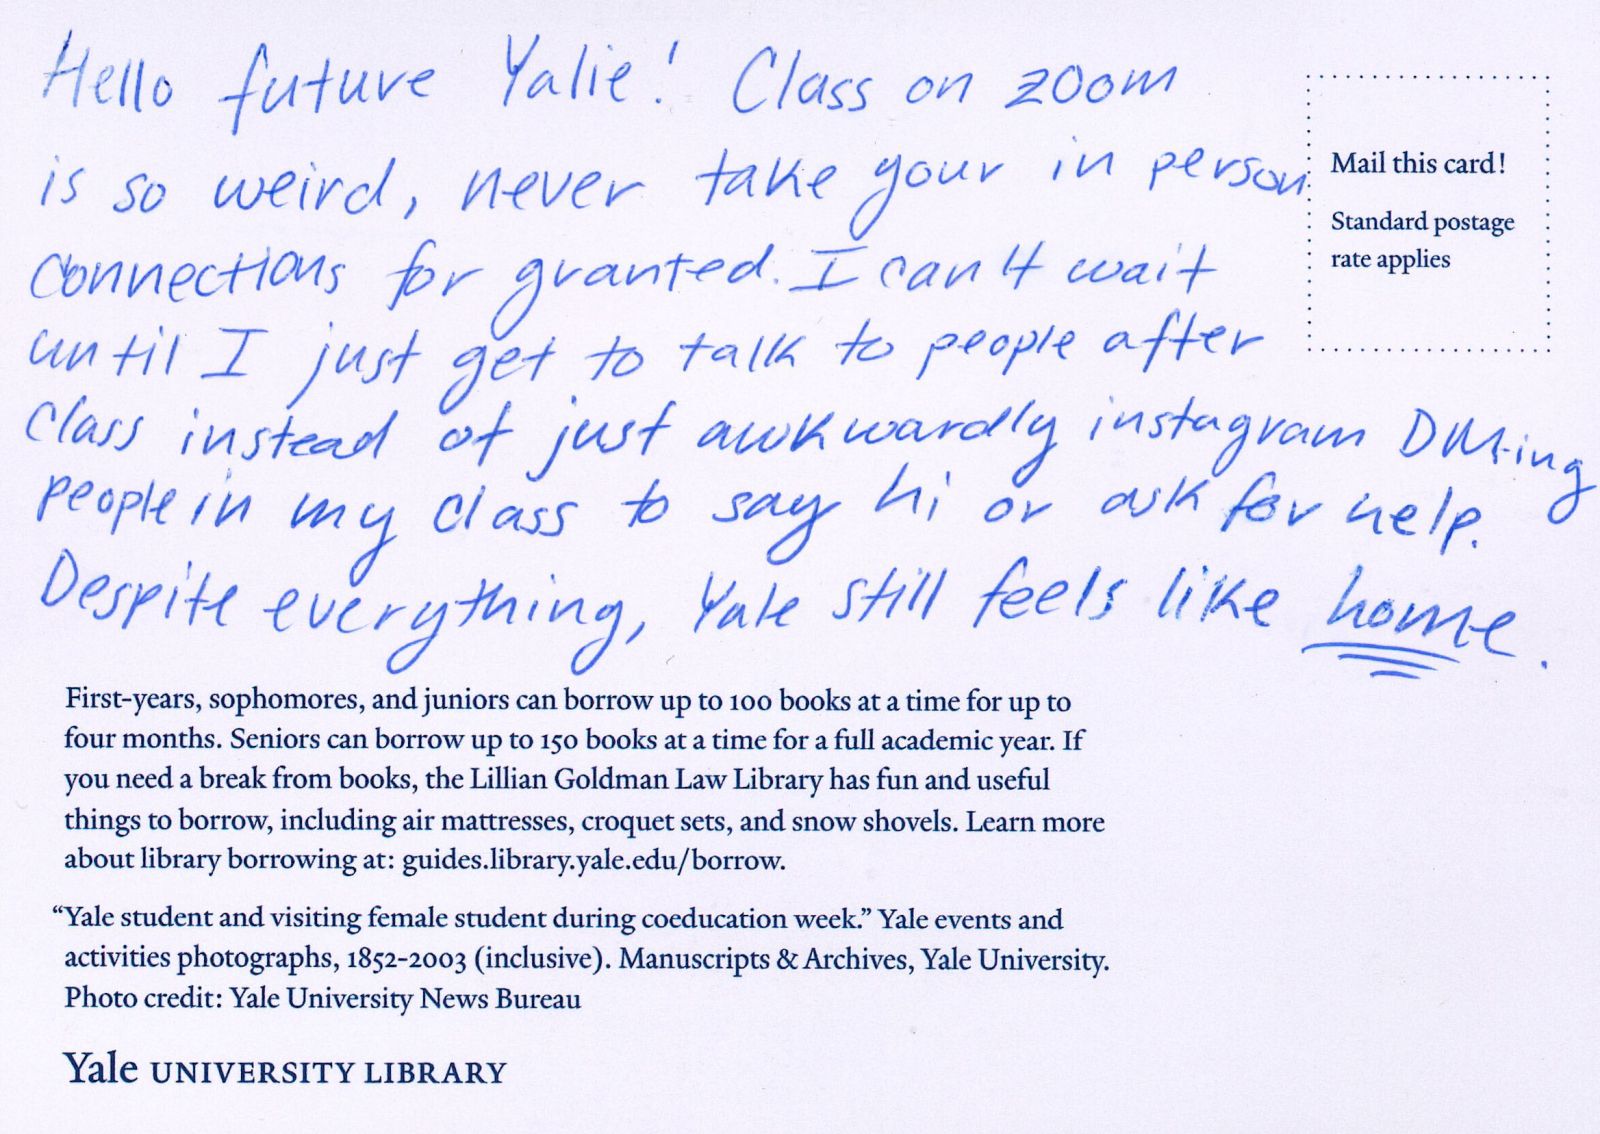 Hello future Yalie! Class on zoom
is so weird, never take your in person
connections for granted. I can't wait
until I just get to talk to people after
class instead of just awkwardly instagram DM-ing
people in my class to say hi or ask for help.
Despite everything, Yale still feels like home.
Mail this card!
Standard postage
rate applies
First-years, sophomores, and juniors can borrow up to 100 books at a time for up to
four months. Seniors can borrow up to 150 books at a time for a full academic year. If
you need a break from books, the Lillian Goldman Law Library has fun and useful
things to borrow, including air mattresses, croquet sets, and snow shovels. Learn more
about library borrowing at: guides.library.yale.edu/borrow.
“Yale student and visiting female student during coeducation week.” Yale events and
activities photographs, 1852-2003 (inclusive). Manuscripts & Archives, Yale University.
Photo credit: Yale University News Bureau
Yale UNIVERSITY LIBRARY